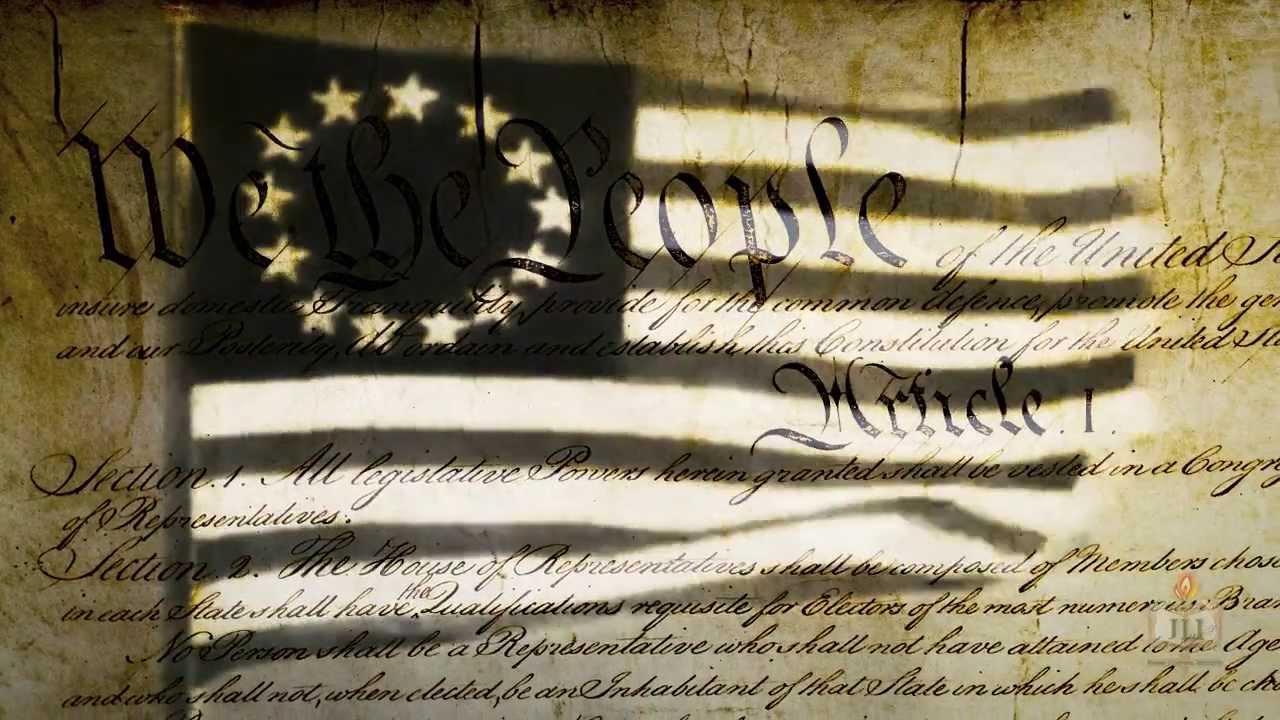 We the People of the United S
insure domestic Tranquility, provide for the common defence, promote the gen
and our Posterity, do ordain and establish this Constitution for the United Sta
Article. I.
Section. 1. All legislative Powers herein granted shall be vested in a Congr
of Representatives.
Section. 2. The House of Representatives shall be composed of Members chose
the
in each State shall have Qualifications requisite for Electors of the most numerous Bran
No Person shall be a Representative who shall not have attained to the Age
and who shall not, when elected, be an Inhabitant of that State in which he shall be cho
JLI